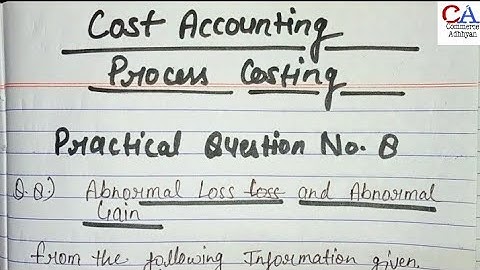 CA
Commerce
Adhhyan
Cost Accounting
Process Costing
Practical Question No. 8
Q.8:) Abnormal Loss loss and Abnormal
Gain
from the following Information given.